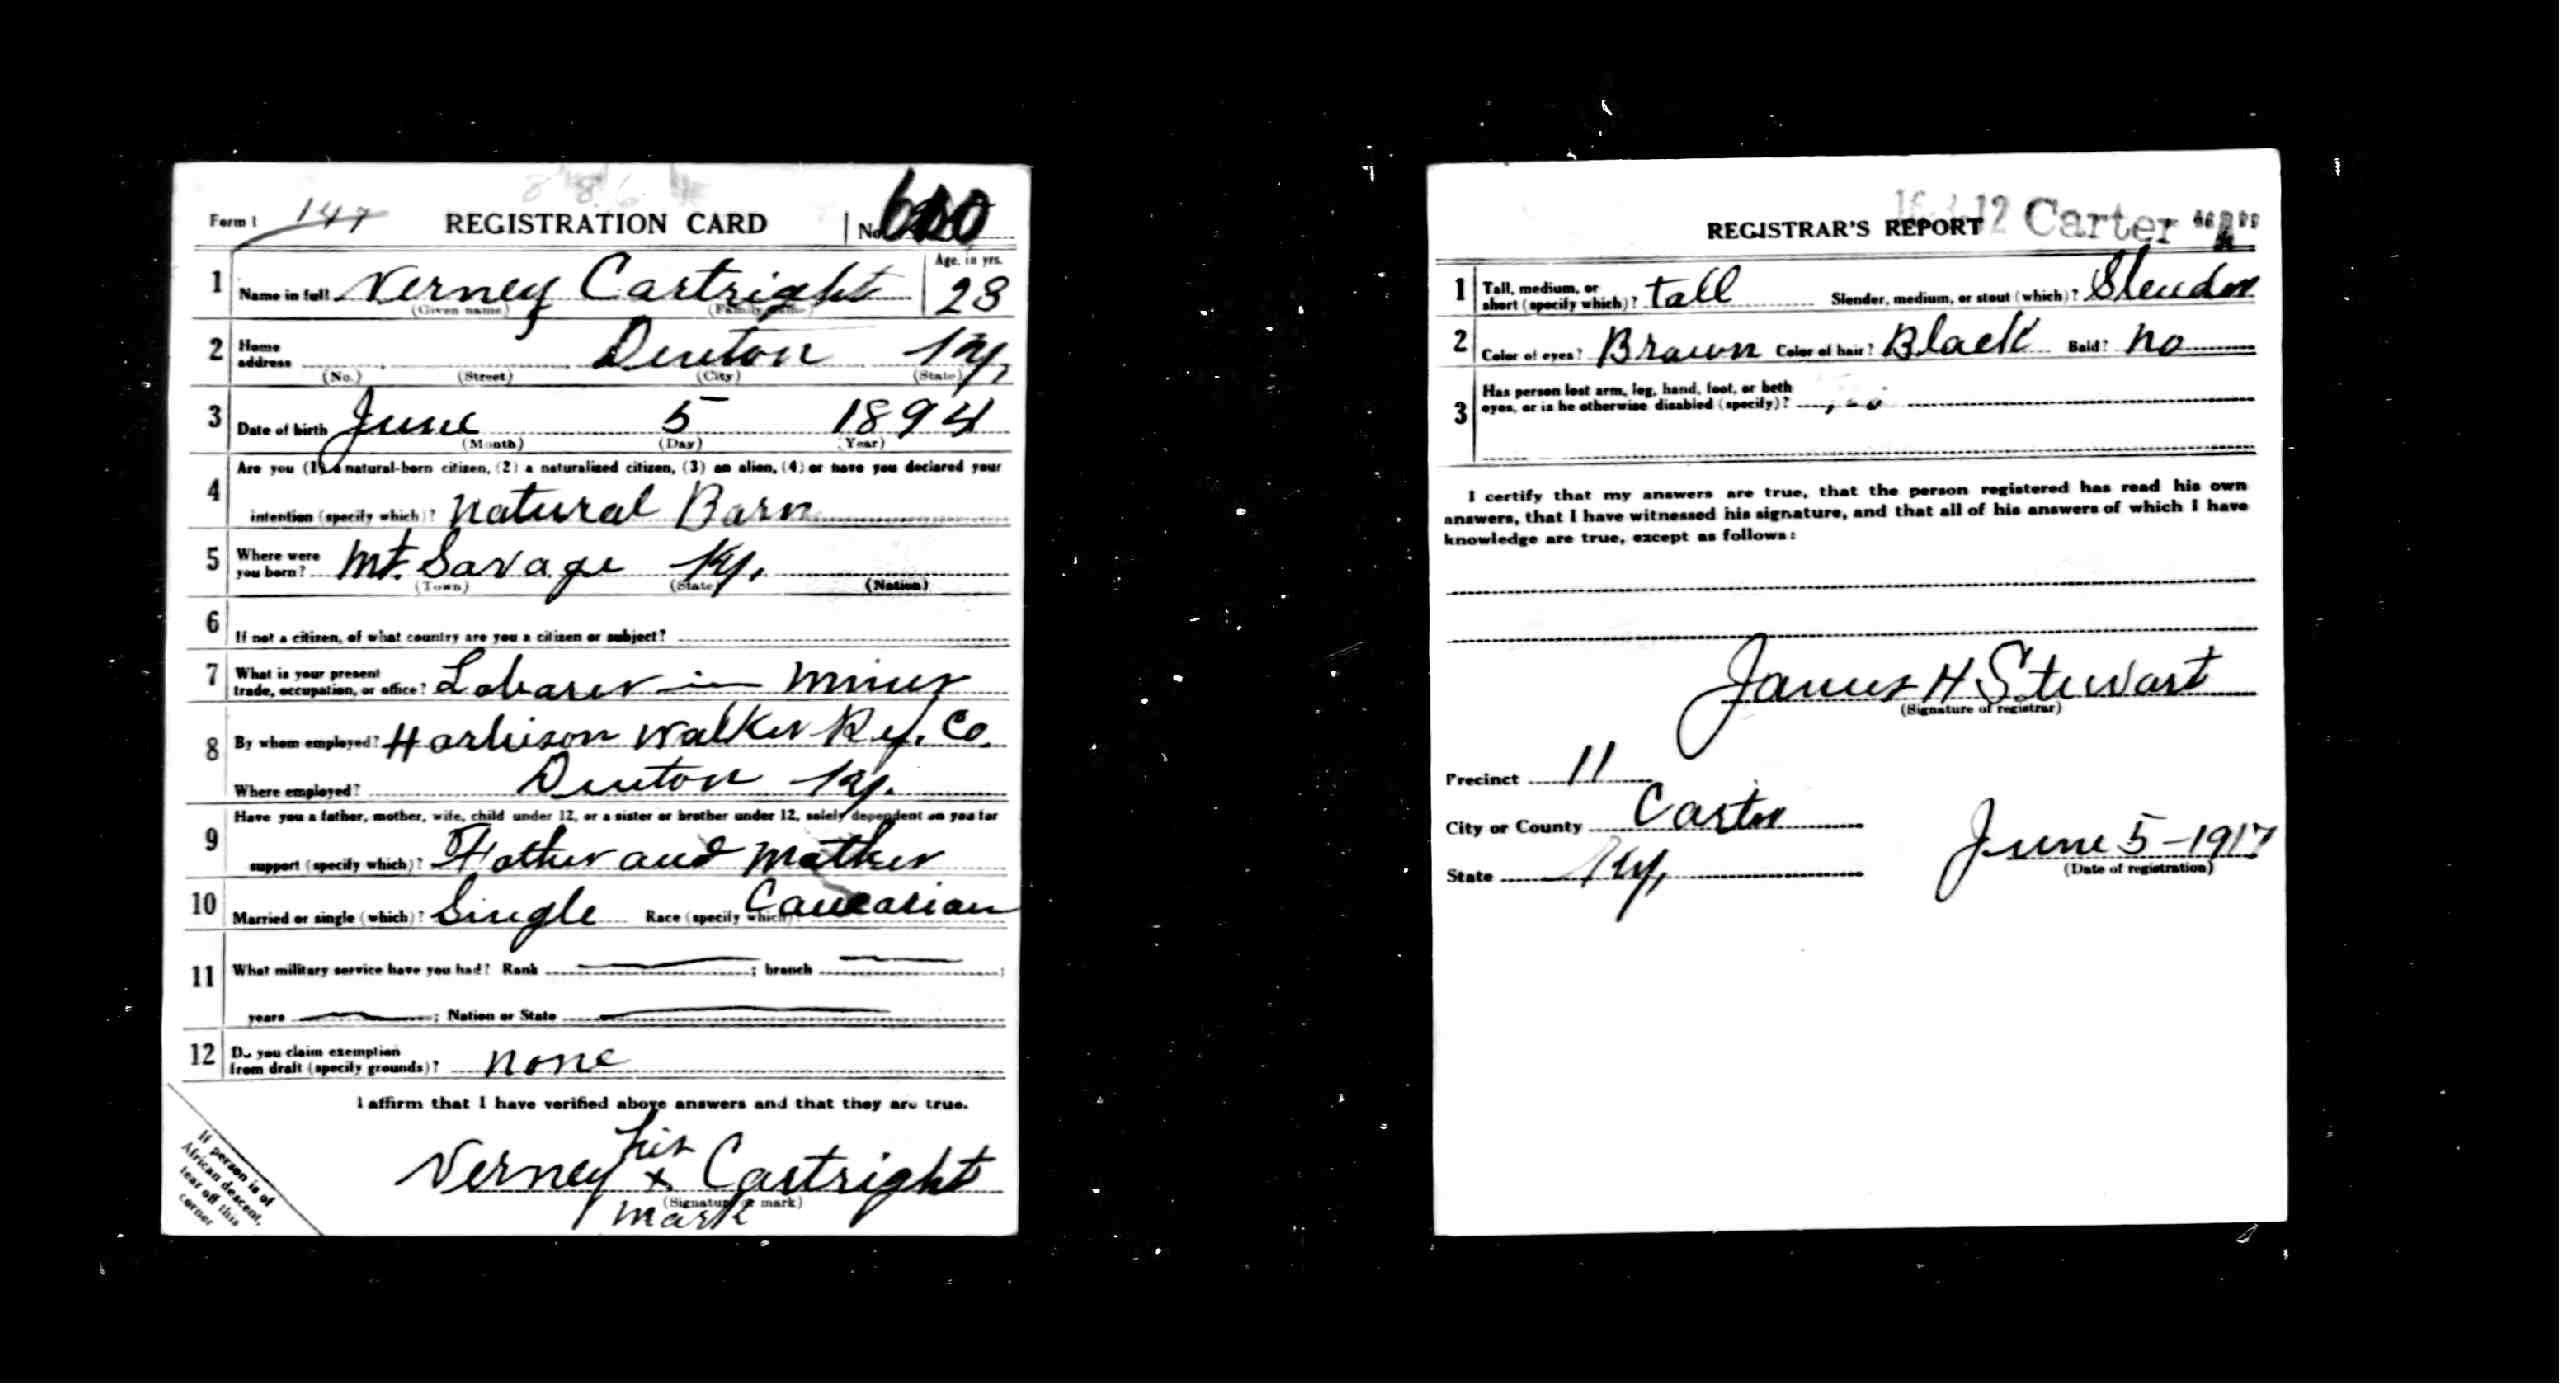 Form 1 147 REGISTRATION CARD No.
1 Name in full Verney Cartright Age, in yrs. 23
(Given name) (Family name)
2 Home address Denton Ky,
(No.) (Street) (City) (State)
3 Date of birth June 5 1894
(Month) (Day) (Year)
4 Are you (1) a natural-born citizen, (2) a naturalized citizen, (3) an alien, (4) or have you declared your
intention (specify which)? Natural Born
5 Where were you born? Mt. Savage Ky.
(Town) (State) (Nation)
6 If not a citizen, of what country are you a citizen or subject?
7 What is your present trade, occupation, or office? Laborer in Mines
8 By whom employed? Harbison Walker Ref. Co.
Where employed? Denton Ky.
9 Have you a father, mother, wife, child under 12, or a sister or brother under 12, solely dependent on you for
support (specify which)? Father and Mother
10 Married or single (which)? Single Race (specify which)? Caucasian
11 What military service have you had? Rank ; branch ;
years ; Nation or State
12 Do you claim exemption from draft (specify grounds)? None
I affirm that I have verified above answers and that they are true.
his
Verney x Cartright
(Signature or mark)
mark
If person is of
African descent,
tear off this
corner
REGISTRAR'S REPORT 12 Carter
1 Tall, medium, or short (specify which)? Tall Slender, medium, or stout (which)? Slender
2 Color of eyes? Brown Color of hair? Black Bald? No
3 Has person lost arm, leg, hand, foot, or both
eyes, or is he otherwise disabled (specify)? no
I certify that my answers are true, that the person registered has read his own
answers, that I have witnessed his signature, and that all of his answers of which I have
knowledge are true, except as follows:
James H Stewart
(Signature of registrar)
Precinct 11
City or County Carter
State Ky,
June 5-1917
(Date of registration)